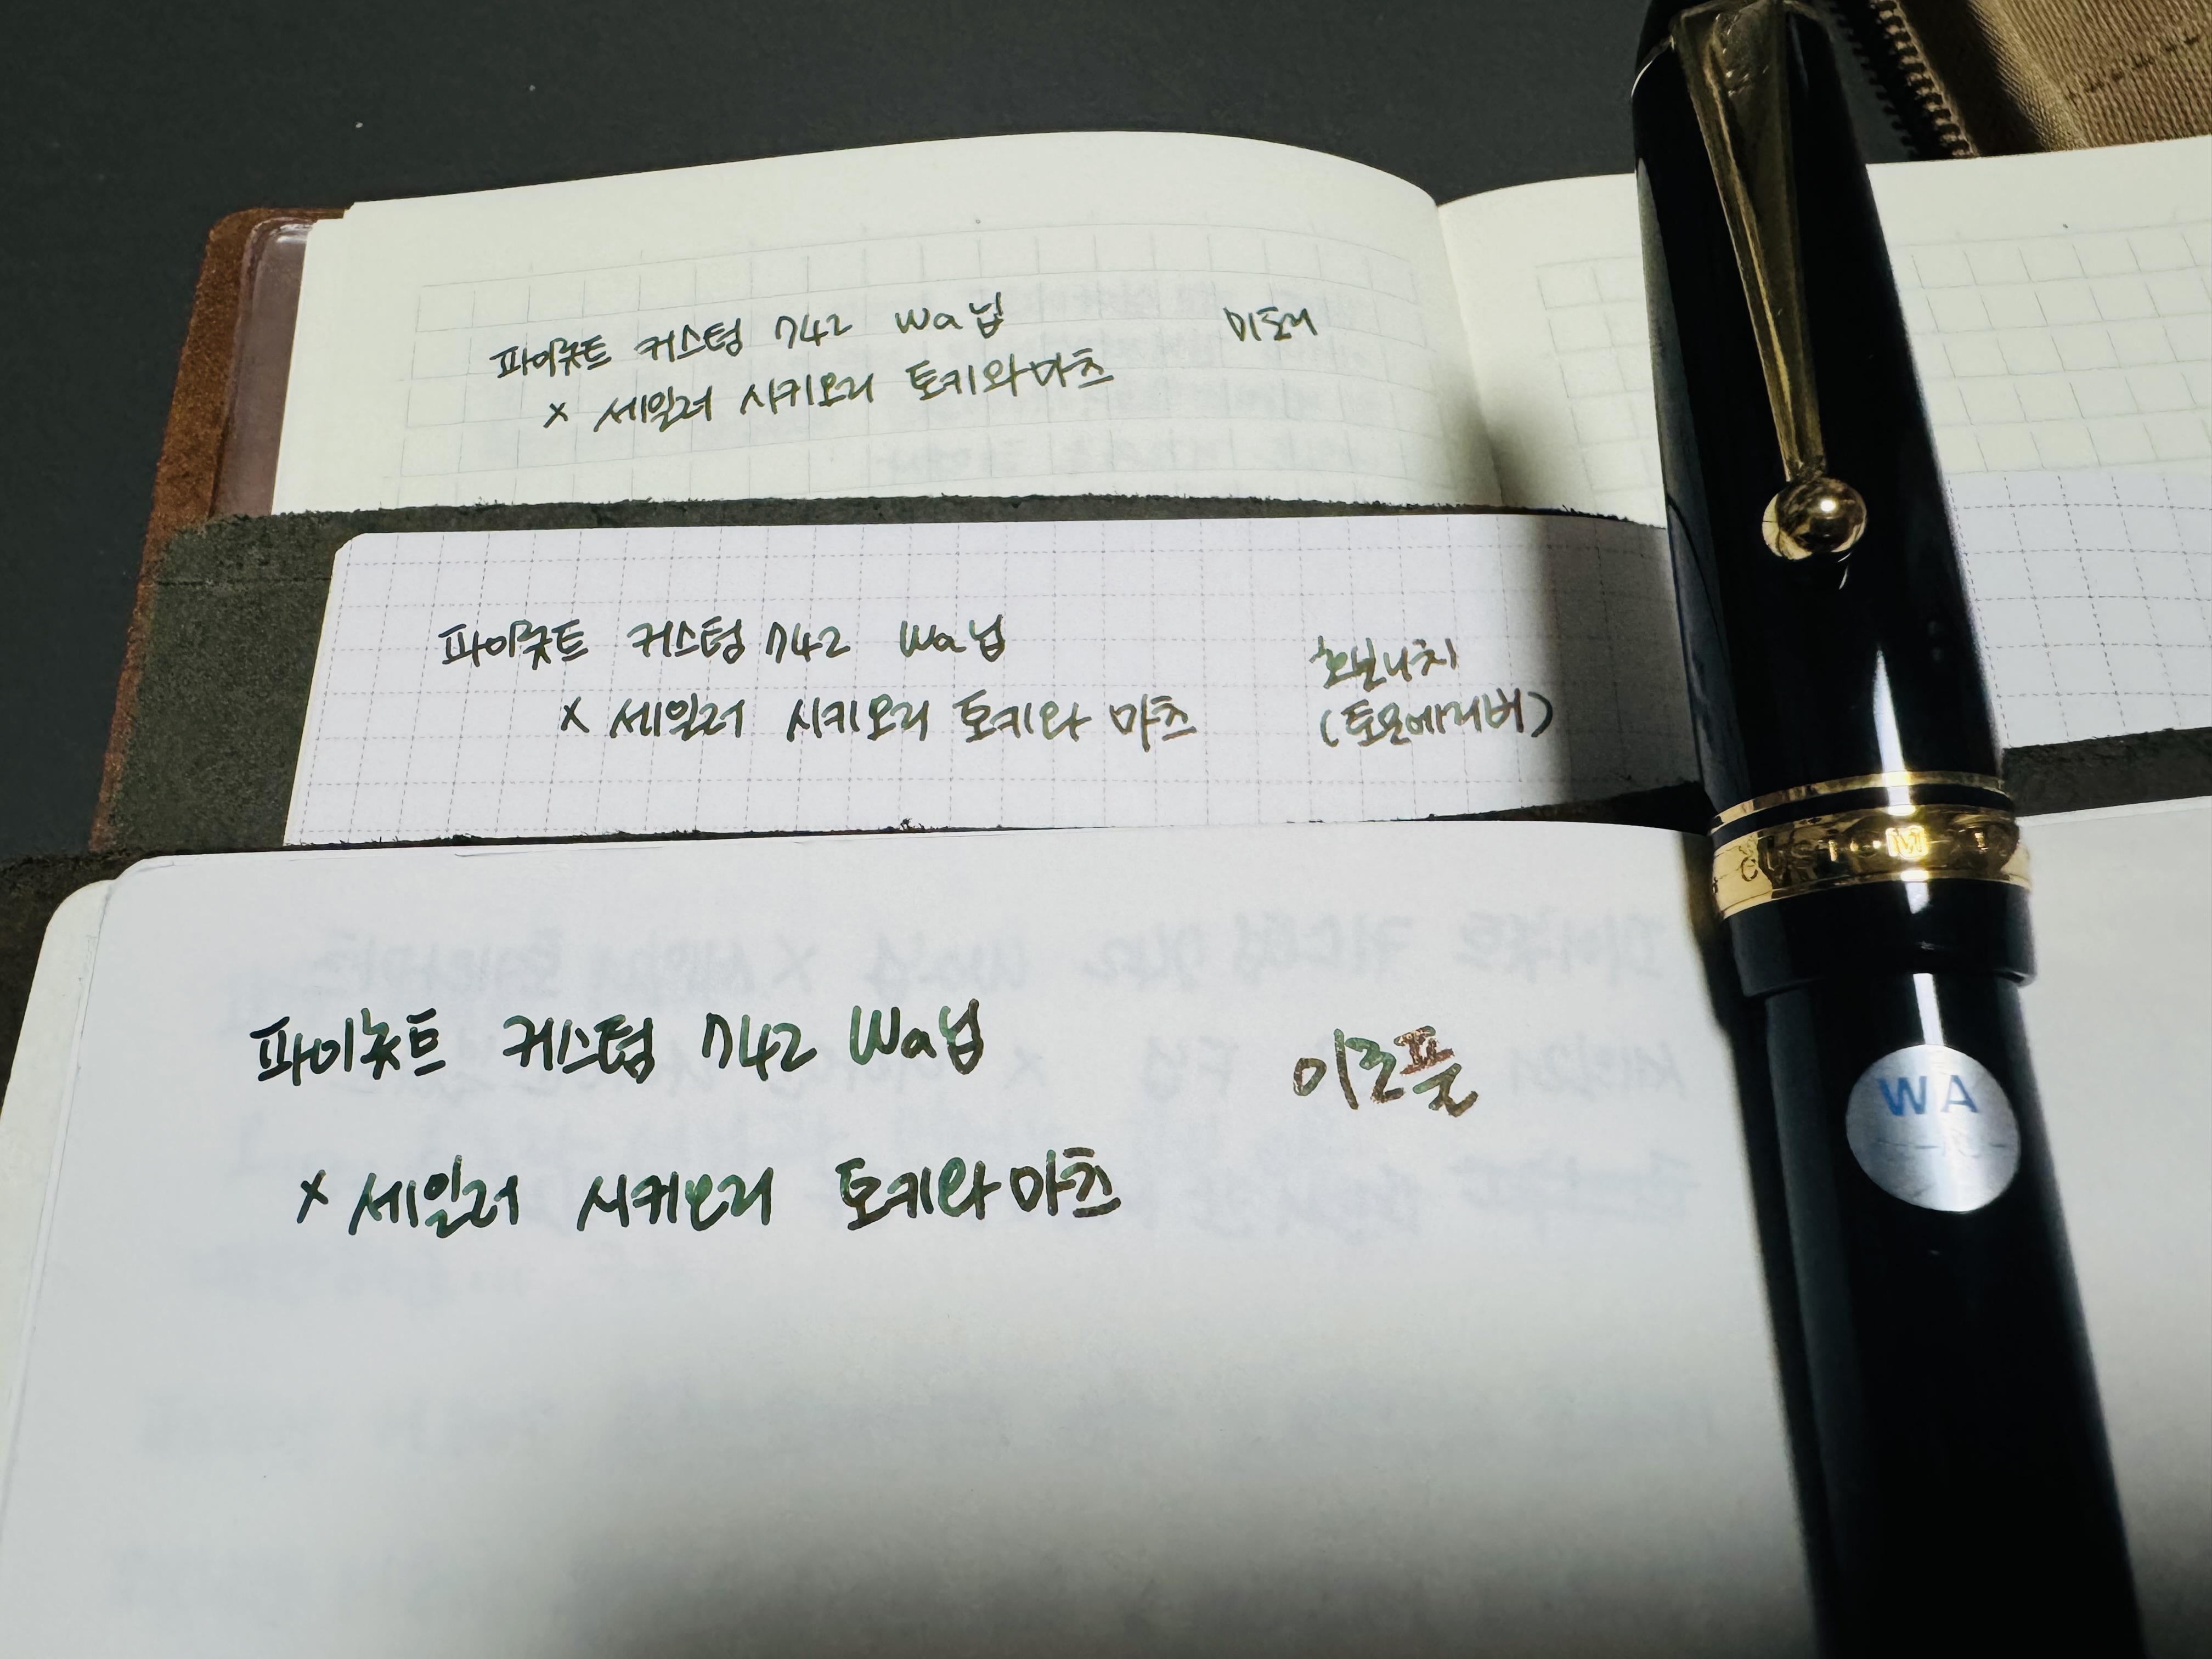 파이롯트 커스텀 742 Wa닙 미도리
x 세일러 시키오리 토키와마츠
파이롯트 커스텀 742 Wa닙 호보니치
x 세일러 시키오리 토키와 마츠 (토모에리버)
파이롯트 커스텀 742 Wa닙 이로풀
x 세일러 시키오리 토키와마츠
CUSTOM
WA